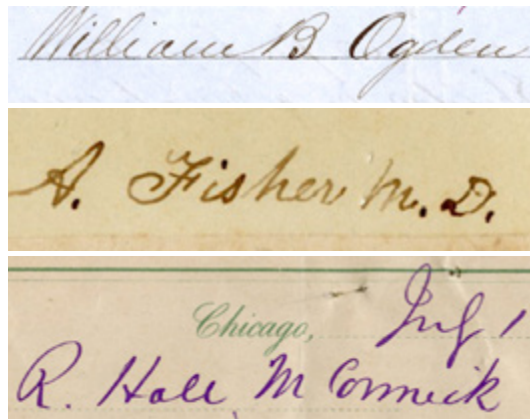 William B Ogden
A. Fisher M.D.
Chicago, July 1
R. Hall McCormick